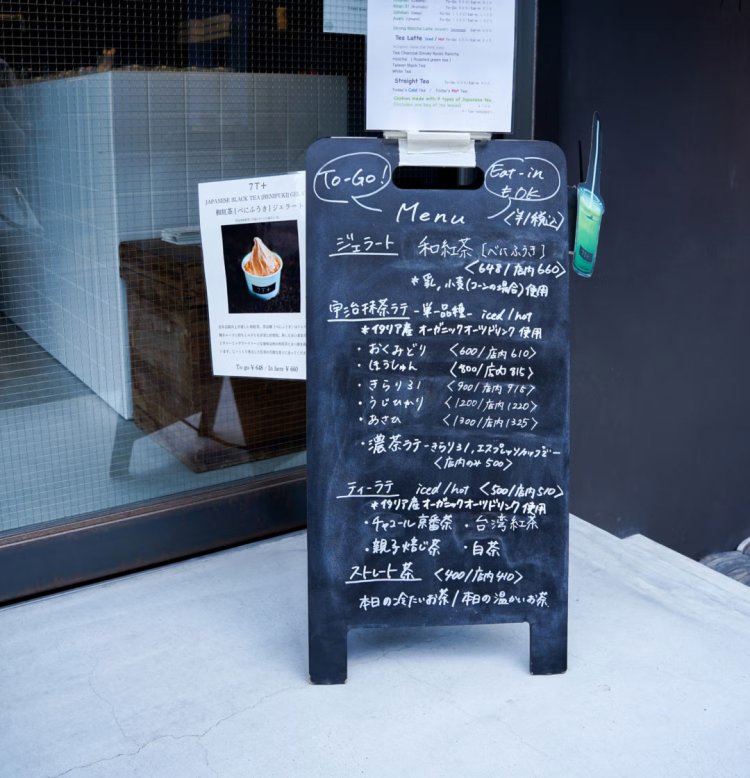 Strong Matcha Latte
Tea Latte Iced / Hot
Tea Charcoal Smoky Kyoto Bancha
Hojicha ( Roasted green tea )
Taiwan Black Tea
White Tea
Straight Tea
Today's Cold Tea / Today's Hot Tea
Cookies made with 7 types of Japanese tea
7T+
JAPANESE BLACK TEA [BENIFUKI] GEL
和紅茶 [べにふうき] ジェラート
7T+
To go ¥ 648 / In here ¥ 660
To-Go!
Eat-in
もOK
Menu
(¥/税込)
ジェラート 和紅茶 [べにふうき]
<648/店内660>
*乳, 小麦(コーンの場合)使用
宇治抹茶ラテ -単一品種- iced/hot
*イタリア産 オーガニックオーツドリンク 使用
・おくみどり <600/店内610>
・ほうしゅん <800/店内815>
・きらり31 <900/店内915>
・うじひかり <1200/店内1220>
・あさひ <1300/店内1325>
・濃茶ラテ -きらり31, エスプレッソカップで-
<店内のみ500>
ティーラテ iced/hot <500/店内510>
*イタリア産 オーガニックオーツドリンク 使用
・チャコール京番茶 ・台湾紅茶
・親子焙じ茶 ・白茶
ストレート茶 <400/店内410>
本日の冷たいお茶/本日の温かいお茶